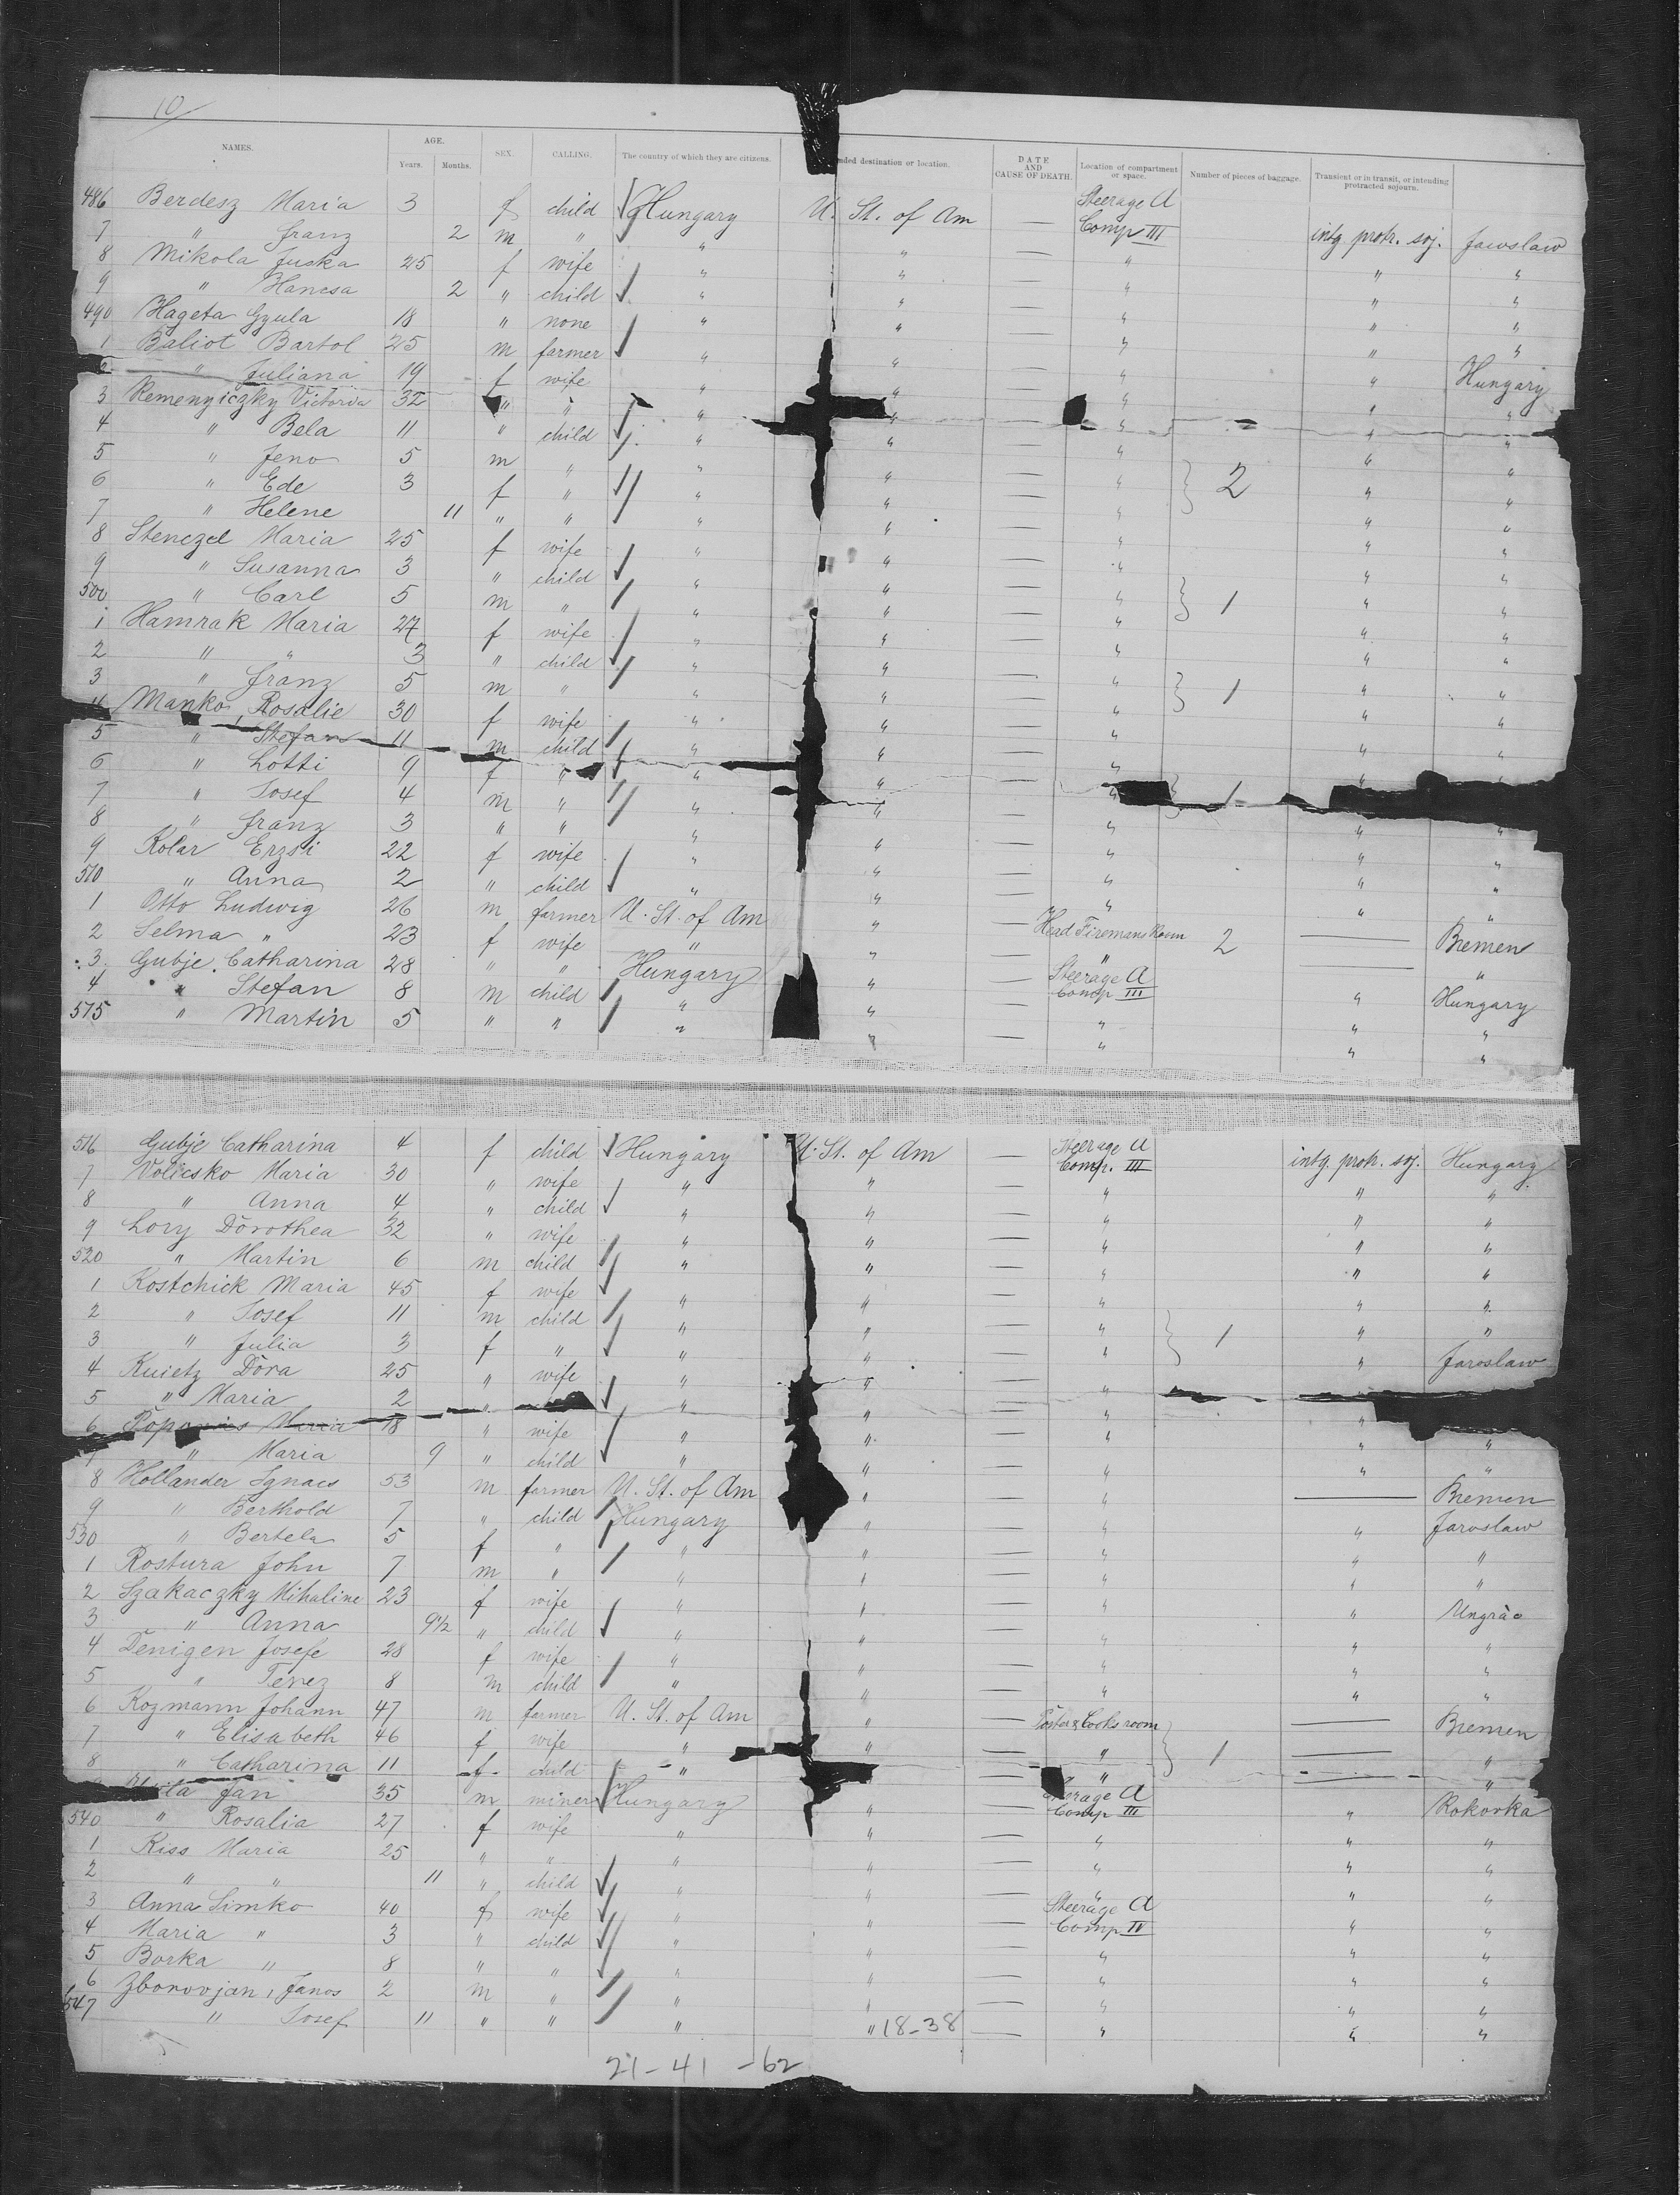 10/
NAMES. AGE. Years. Months. SEX. CALLING. The country of which they are citizens. nded destination or location. DATE AND CAUSE OF DEATH. Location of compartment or space. Number of pieces of baggage. Transient or in transit, or intending protracted sojourn.
486 Berdesz Maria 3 f child Hungary U. St. of Am — Steerage A Comp III intg protr. soj. Jawslaw
7 " Franz 2 m " " " — " " "
8 Mikola Juska 25 f wife " " — " " "
9 " Hancsa 2 " child " " — " " "
490 Hageta Gyula 18 " none " " — " " "
1 Baliot Bartol 25 m farmer " " — " " Hungary
2 " Juliana 19 f wife " " — " " "
3 Remenyiczky Victoria 32 " " " " — " " "
4 " Bela 11 " child " " — " " "
5 " Jeno 5 m " " " — " 2 " "
6 " Ede 3 f " " " — " " "
7 " Helene 11 " " " " — " " "
8 Stenczel Maria 25 f wife " " — " " "
9 " Susanna 3 " child " " — " " "
500 " Carl 5 m " " " — " 1 " "
1 Hamrak Maria 27 f wife " " — " " "
2 " " 3 " child " " — " " "
3 " Franz 5 m " " " — " 1 " "
4 Manko, Rosalie 30 f wife " " — " " "
5 " Stefan 11 m child " " — " " "
6 " Lotti 9 f " " " — " 1 " "
7 " Josef 4 m " " " — "
8 " Franz 3 " " " " — " " "
9 Kolar Erzsi 22 f wife " " — " " "
510 " Anna 2 " child " " — " " "
1 Otto Ludwig 26 m farmer U. St. of Am " — Head Firemans Room 2 — Bremen
2 Selma " 23 f wife " " — " — "
3 Gubje Catharina 28 " " Hungary " — Steerage A Comp III " Hungary
4 " Stefan 8 m child " " — " " "
515 " Martin 5 " " " " — " " "
516 Gubje Catharina 4 f child Hungary U. St. of Am — Steerage A Comp. III intg. protr. soj. Hungary
7 Volicsko Maria 30 " wife " " — " " "
8 " Anna 4 " child " " — " " "
9 Lory Dorothea 32 " wife " " — " " "
520 " Martin 6 m child " " — " " "
1 Kostchick Maria 45 f wife " " — " " "
2 " Josef 11 m child " " — " 1 " "
3 " Julia 3 f " " " — " " Jaroslaw
4 Kuietz Dora 25 " wife " " — "
5 " Maria 2 " " " — " "
6 Popovics Maria 18 " wife " " — " " "
7 " Maria 9 " child " " — " " "
8 Hollander Ignacs 53 m farmer U. St. of Am " — " — Bremen
9 " Berthold 7 " child Hungary " — " " Jaroslaw
530 " Bertela 5 f " " " — " " "
1 Rostura John 7 m " " " — " " "
2 Szakaczky Mihaline 23 f wife " " — " " Ungrác
3 " Anna 9½ " child " " — " " "
4 Denigen Josefe 28 f wife " " — " " "
5 " Terez 8 m child " " — " " "
6 Kozmann Johann 47 m farmer U. St. of Am " — Porter & Cooks room — Bremen
7 " Elisabeth 46 f wife " " — " 1 — "
8 " Catharina 11 f child " — " — "
la Jan 35 m miner Hungary " — Steerage A Comp III " Kokovka
540 " Rosalia 27 f wife " " — " " "
1 Kiss Maria 25 " " " " — " " "
2 " " 11 " child " " — " " "
3 Anna Simko 40 f wife " " — Steerage A Comp IV " "
4 Maria " 3 " child " " — " " "
5 Borka " 8 " " " " — " " "
6 Zborovjan, Janos 2 m " " " — " " "
547 " Josef 11 " " " " 18-38 — " " "
21-41 -62